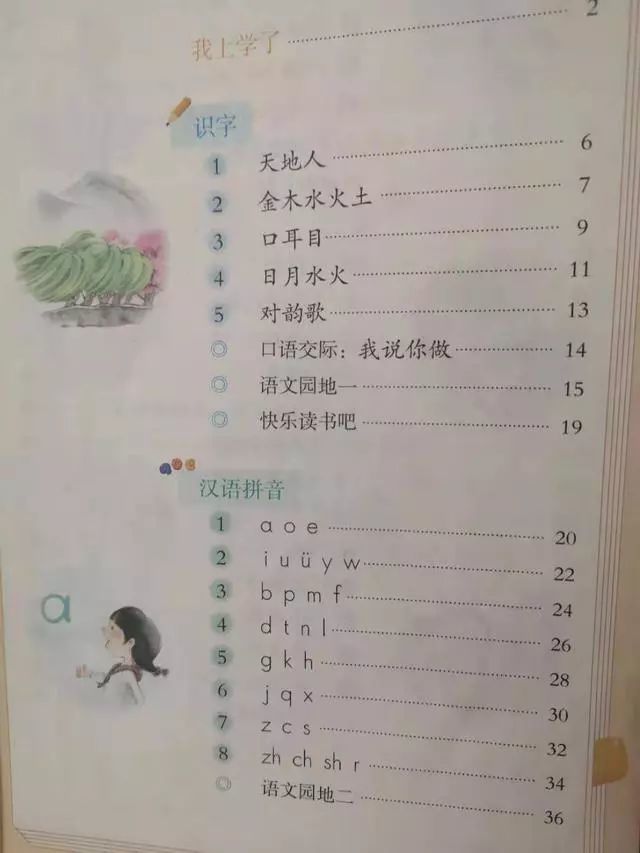 我上学了 2
识字
1 天地人 6
2 金木水火土 7
3 口耳目 9
4 日月水火 11
5 对韵歌 13
◎ 口语交际：我说你做 14
◎ 语文园地一 15
◎ 快乐读书吧 19
汉语拼音
1 ɑ o e 20
2 i u ü y w 22
3 b p m f 24
4 d t n l 26
5 g k h 28
6 j q x 30
7 z c s 32
8 zh ch sh r 34
◎ 语文园地二 36
ɑ